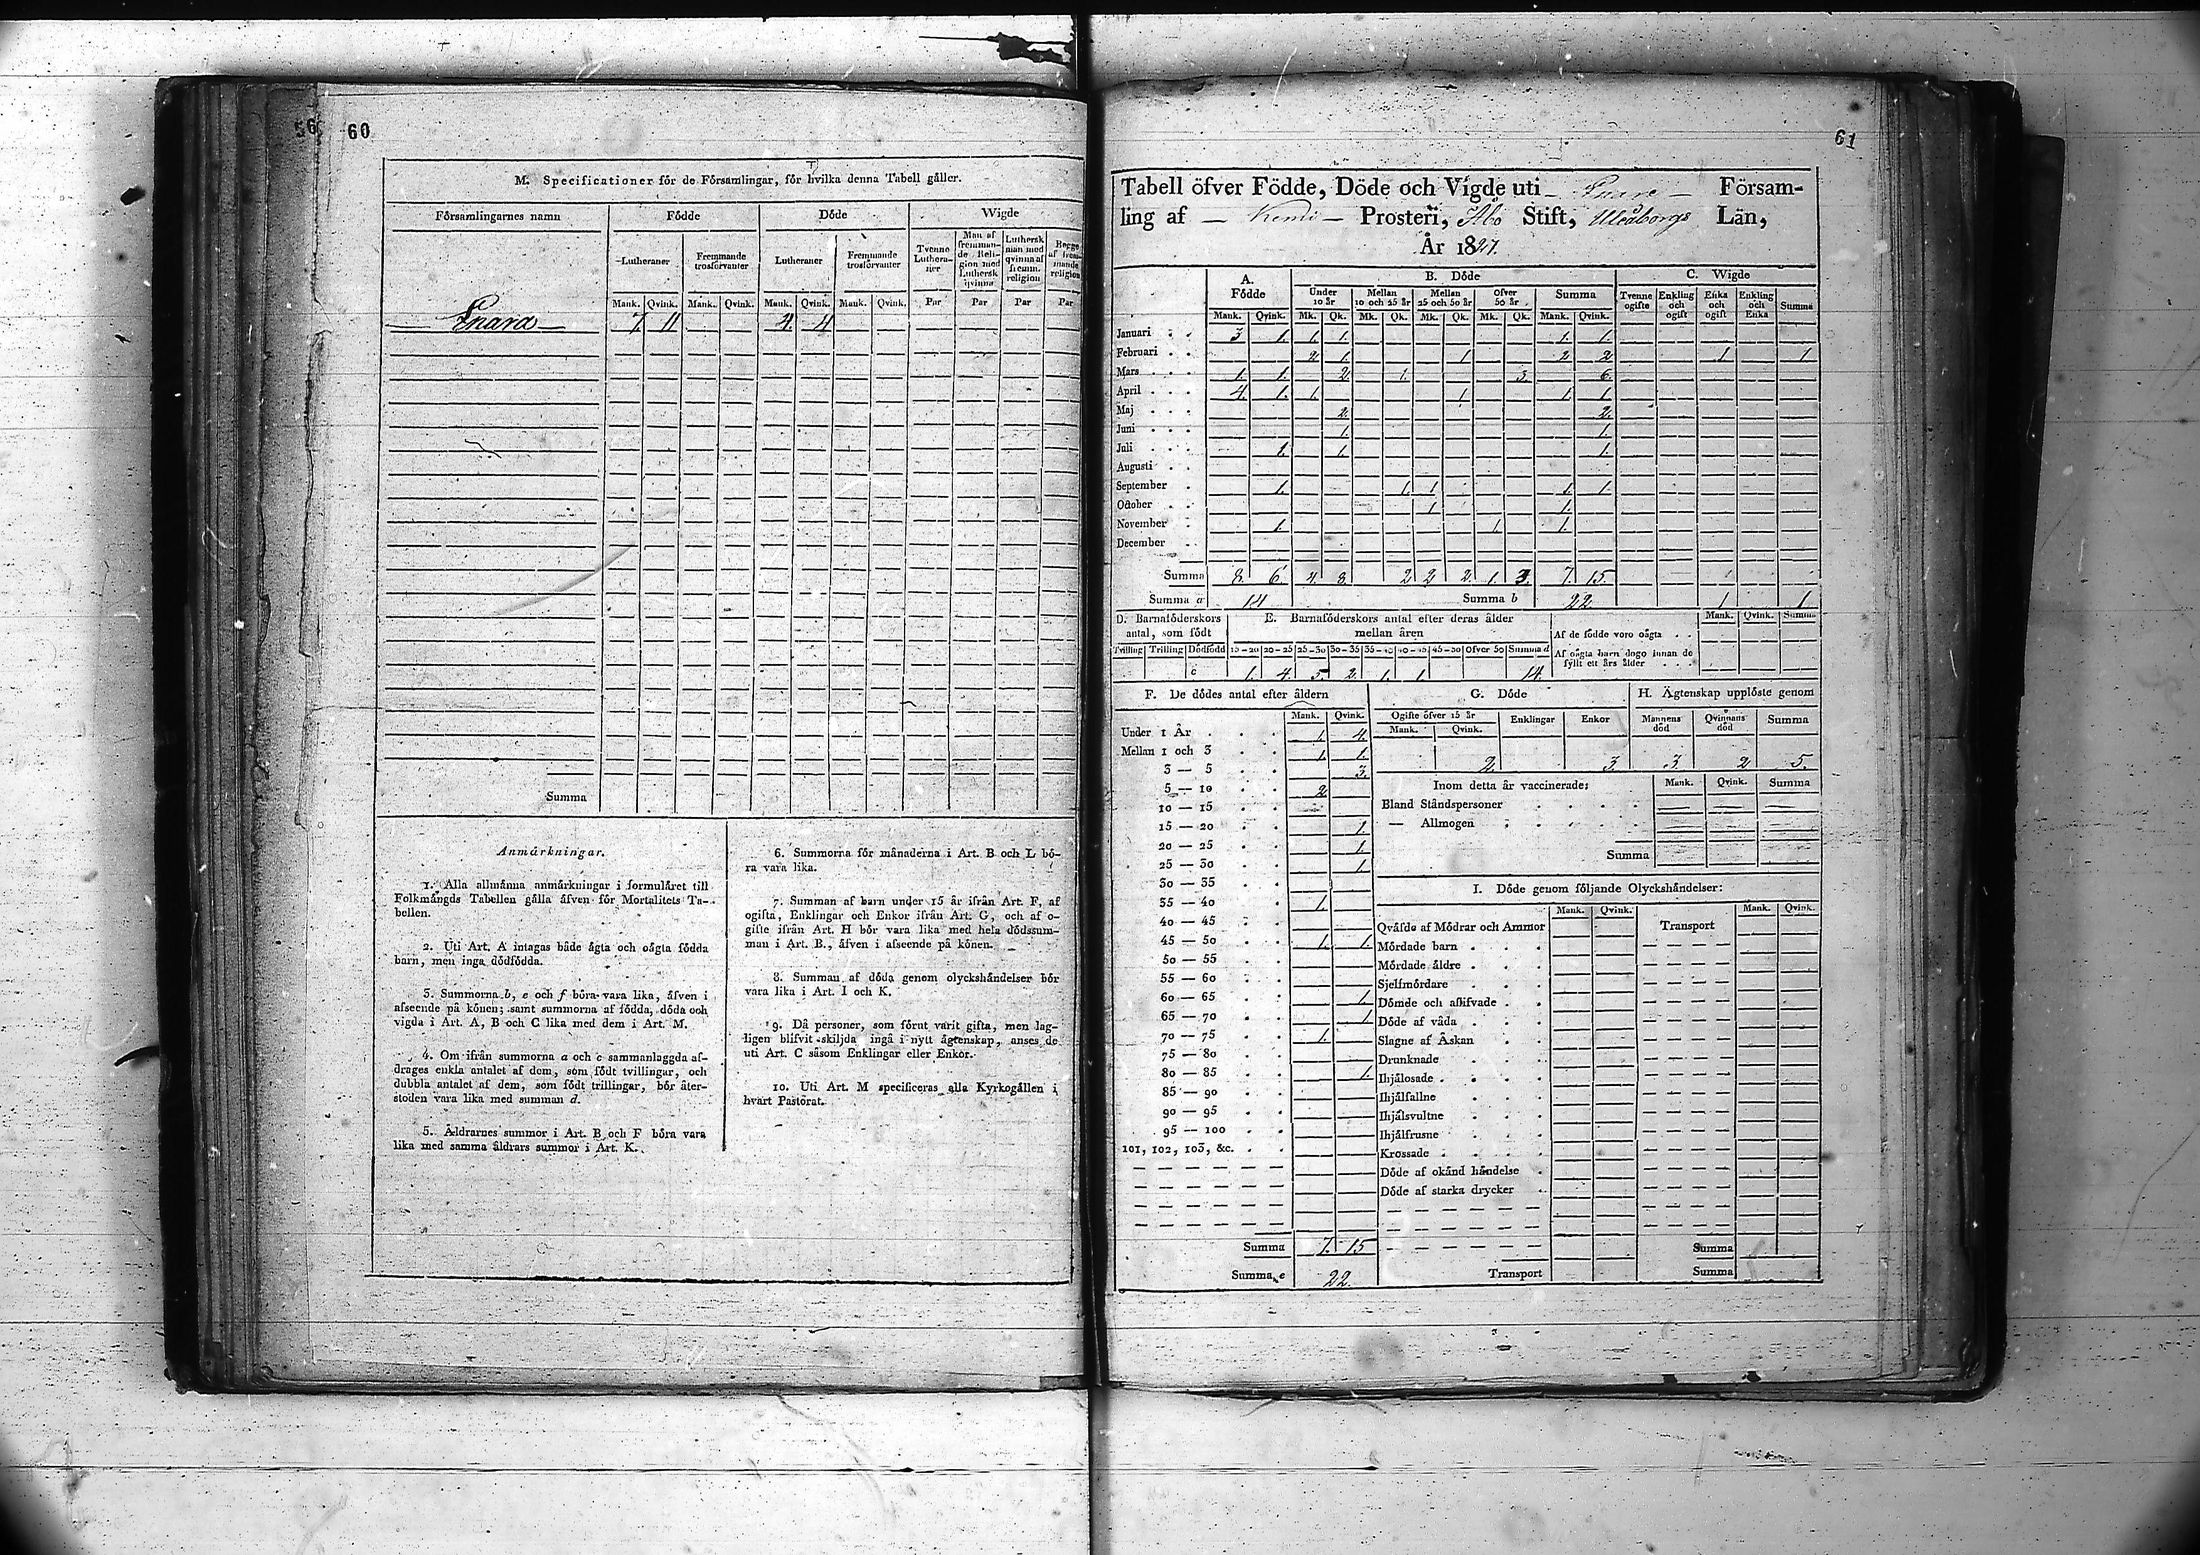 56 60
M. Specificationer för de Församlingar, för hvilka denna Tabell gäller.
Församlingarnes namn Födde Döde Wigde
Lutheraner Fremmande trosförvanter Lutheraner Fremmande trosförvanter Tvenne Lutheraner Man af fremmande Religion med Luthersk qvinna Luthersk man med qvinna af fremm. religion Begge af fremmande religion
Mank. Qvink. Mank. Qvink. Mank. Qvink. Mank. Qvink. Par Par Par Par
Enara 7. 11 4. 4
Summa
Anmärkningar.
1. Alla allmänna anmärkningar i formuläret till
Folkmängds Tabellen gälla äfven för Mortalitets Ta-
bellen.
2. Uti Art. A intagas både ägta och oägta födda
barn, men inga dödfödda.
3. Summorna b, e och f böra vara lika, äfven i
afseende på könen; samt summorna af födda, döda och
vigda i Art. A, B och C lika med dem i Art. M.
4. Om ifrån summorna a och c sammanlaggda af-
drages enkla antalet af dem, som födt tvillingar, och
dubbla antalet af dem, som födt trillingar, bör åter-
stoden vara lika med summan d.
5. Åldrarnes summor i Art. B och F böra vara
lika med samma åldrars summor i Art. K.
6. Summorna för månaderna i Art. B och L bö-
ra vara lika.
7. Summan af barn under 15 år ifrån Art. F, af
ogifta, Enklingar och Enkor ifrån Art. G, och af o-
gifte ifrån Art. H bör vara lika med hela dödssum-
man i Art. B., äfven i afseende på könen.
8. Summan af döda genom olyckshändelser bör
vara lika i Art. I och K.
9. Då personer, som förut varit gifta, men lag-
ligen blifvit skiljda ingå i nytt ägtenskap, anses de
uti Art. C såsom Enklingar eller Enkor.
10. Uti Art. M specificeras alla Kyrkogällen i
hvart Pastorat.
61
Tabell öfver Födde, Döde och Vigde uti Enare Församling
ling af Kemi Prosteri, Åbo Stift, Uleåborgs Län,
År 1827.
A. Födde B. Döde C. Wigde
Under 10 år Mellan 10 och 25 år Mellan 25 och 50 år Öfver 50 år Summa Tvenne ogifte Enkling och ogift Enka och ogift Enkling och Enka Summa
Mank. Qvink. Mk. Qk. Mk. Qk. Mk. Qk. Mk. Qk. Mank. Qvink.
Januari 3 1. 1. 1. 1. 1.
Februari 2. 1. 1 2 2 1 1
Mars 1. 1. 2. 1. 3. 6.
April 4. 1. 1. 1. 1. 1.
Maj 2. 2.
Juni 1. 1.
Juli 1. 1. 1.
Augusti
September 1. 1. 1 1. 1.
October 1. 1.
November 1. 1. 1.
December
Summa 8. 6. 4. 8. 2. 2 2. 1. 3. 7. 15.
Summa a 14 Summa b 22 1 1
D. Barnaföderskors antal, som födt E. Barnaföderskors antal efter deras ålder mellan åren Mank. Qvink. Summa
Af de födde voro oägta
Tvilling Trilling Dödfödd 15-20 20-25 25-30 30-35 35-40 40-45 45-50 Öfver 50 Summa d Af oägta barn dogo innan de fyllt ett års ålder
c 1. 4. 5. 2. 1. 1. 14.
F. De dödes antal efter åldern
Mank. Qvink.
Under 1 År 1. 4.
Mellan 1 och 3 1. 1.
3 — 5 3.
5 — 10 2
10 — 15
15 — 20 1.
20 — 25 1.
25 — 30 1.
30 — 35
35 — 40 1.
40 — 45
45 — 50 1. 1.
50 — 55
55 — 60
60 — 65 1.
65 — 70 1.
70 — 75 1.
75 — 80
80 — 85 1.
85 — 90
90 — 95
95 — 100
101, 102, 103, &c.
Summa 7. 15
Summa e 22.
G. Döde H. Ägtenskap upplöste genom
Ogifte öfver 15 år Enklingar Enkor Mannens död Qvinnans död Summa
Mank. Qvink.
2. 3. 3. 2 5.
Inom detta år vaccinerade: Mank. Qvink. Summa
Bland Ståndspersoner
— Allmogen
Summa
I. Döde genom följande Olyckshändelser:
Mank. Qvink. Mank. Qvink.
Qväfde af Mödrar och Ammor Transport
Mördade barn
Mördade äldre
Sjelfmördare
Dömde och aflifvade
Döde af våda
Slagne af Åskan
Drunknade
Ihjälosade
Ihjälfallne
Ihjälsvultne
Ihjälfrusne
Krossade
Döde af okänd händelse
Döde af starka drycker
Summa
Transport Summa